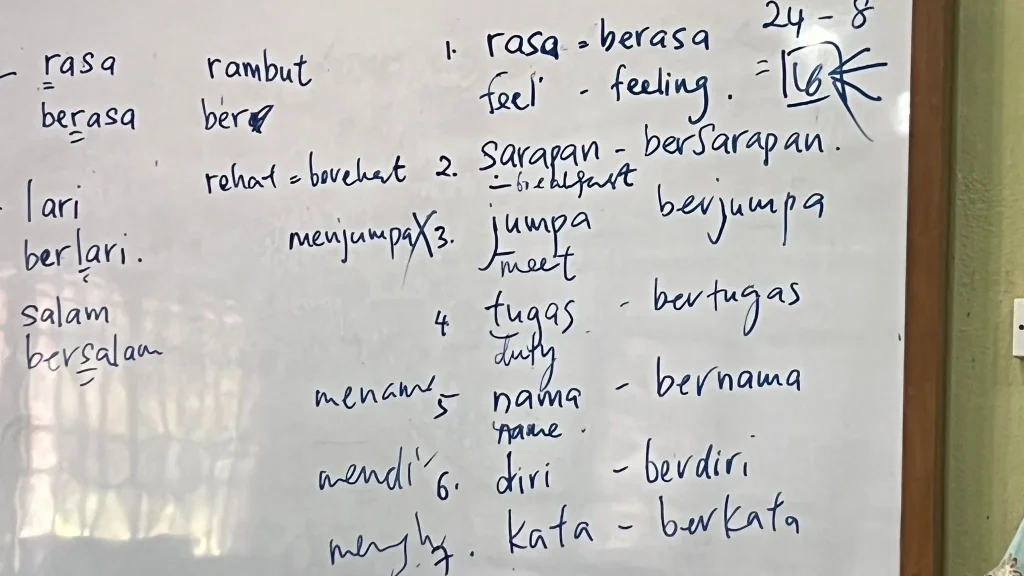 rasa
berasa
lari
berlari.
salam
bersalam
rambut
ber
rehat = berehat
menjumpa X
24 - 8
= 16
1. rasa = berasa
feel - feeling.
2. sarapan - bersarapan.
= breakfast
3. jumpa berjumpa
meet
4 tugas - bertugas
duty
5 nama - bernama
name.
6. diri - berdiri
7. kata - berkata
mendi